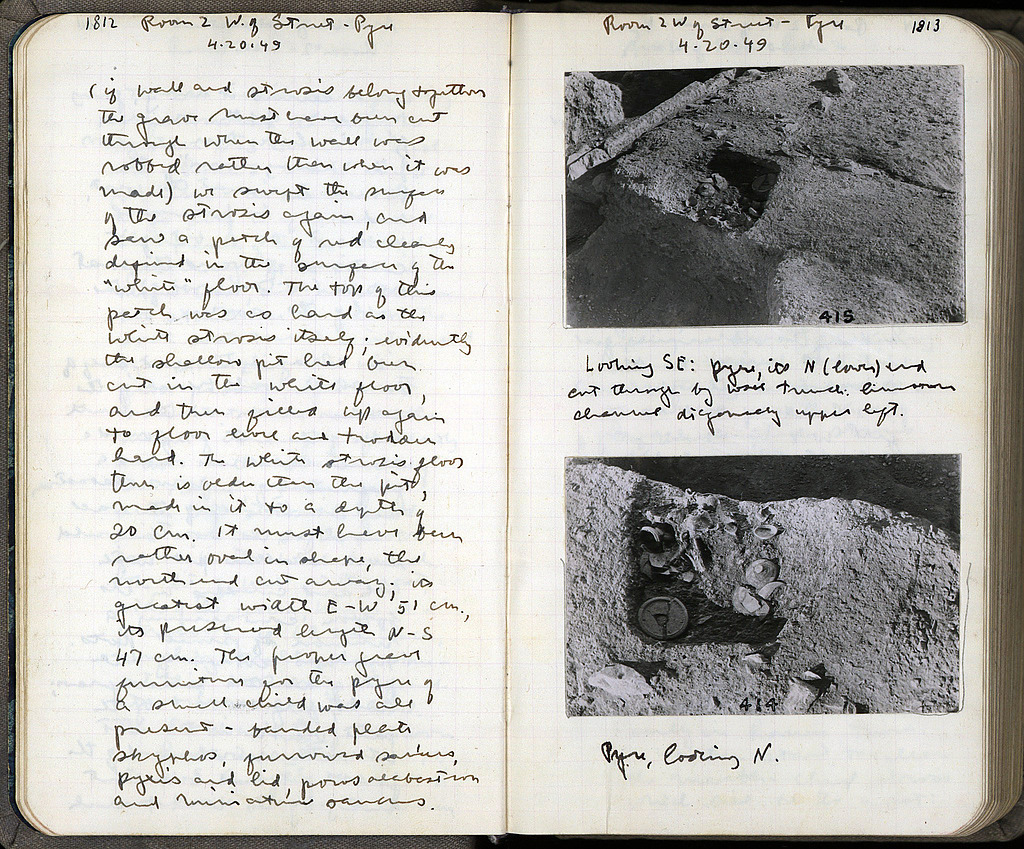 1812 Room 2 W. of Street - Pyre
4.20.49
(if wall and strosis belong together
the grave must have been cut
through when the wall was
robbed rather than when it was
made) we swept the surface
of the strosis again, and
saw a patch of red clearly
defined in the surface of the
"white" floor. The top of this
patch was as hard as the
white strosis itself; evidently
the shallow pit had been
cut in the white floor,
and then filled up again
to floor level and trodden
hard. The white strosis floor
then is older than the pit,
made in it to a depth of
20 cm. It must have been
rather oval in shape, the
north end cut away; its
greatest width E-W 51 cm.,
its preserved length N-S
47 cm. The proper grave
furniture for the pyre of
a small child was all
present - banded plate
skyphos,
pyxis and lid, alabastron
and miniature
Room 2 W of Street - Pyre 1813
4.20.49
415
Looking SE: pyre, its N (lower) end
cut through by trench.
channel diagonally upper left.
414
Pyre, looking N.